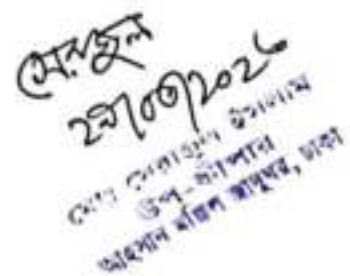 সেরাজুল
২৯/০৩/২০২৬
মোঃ সেরাজুল ইসলাম
উপ-কীপার
আহসান মঞ্জিল জাদুঘর, ঢাকা